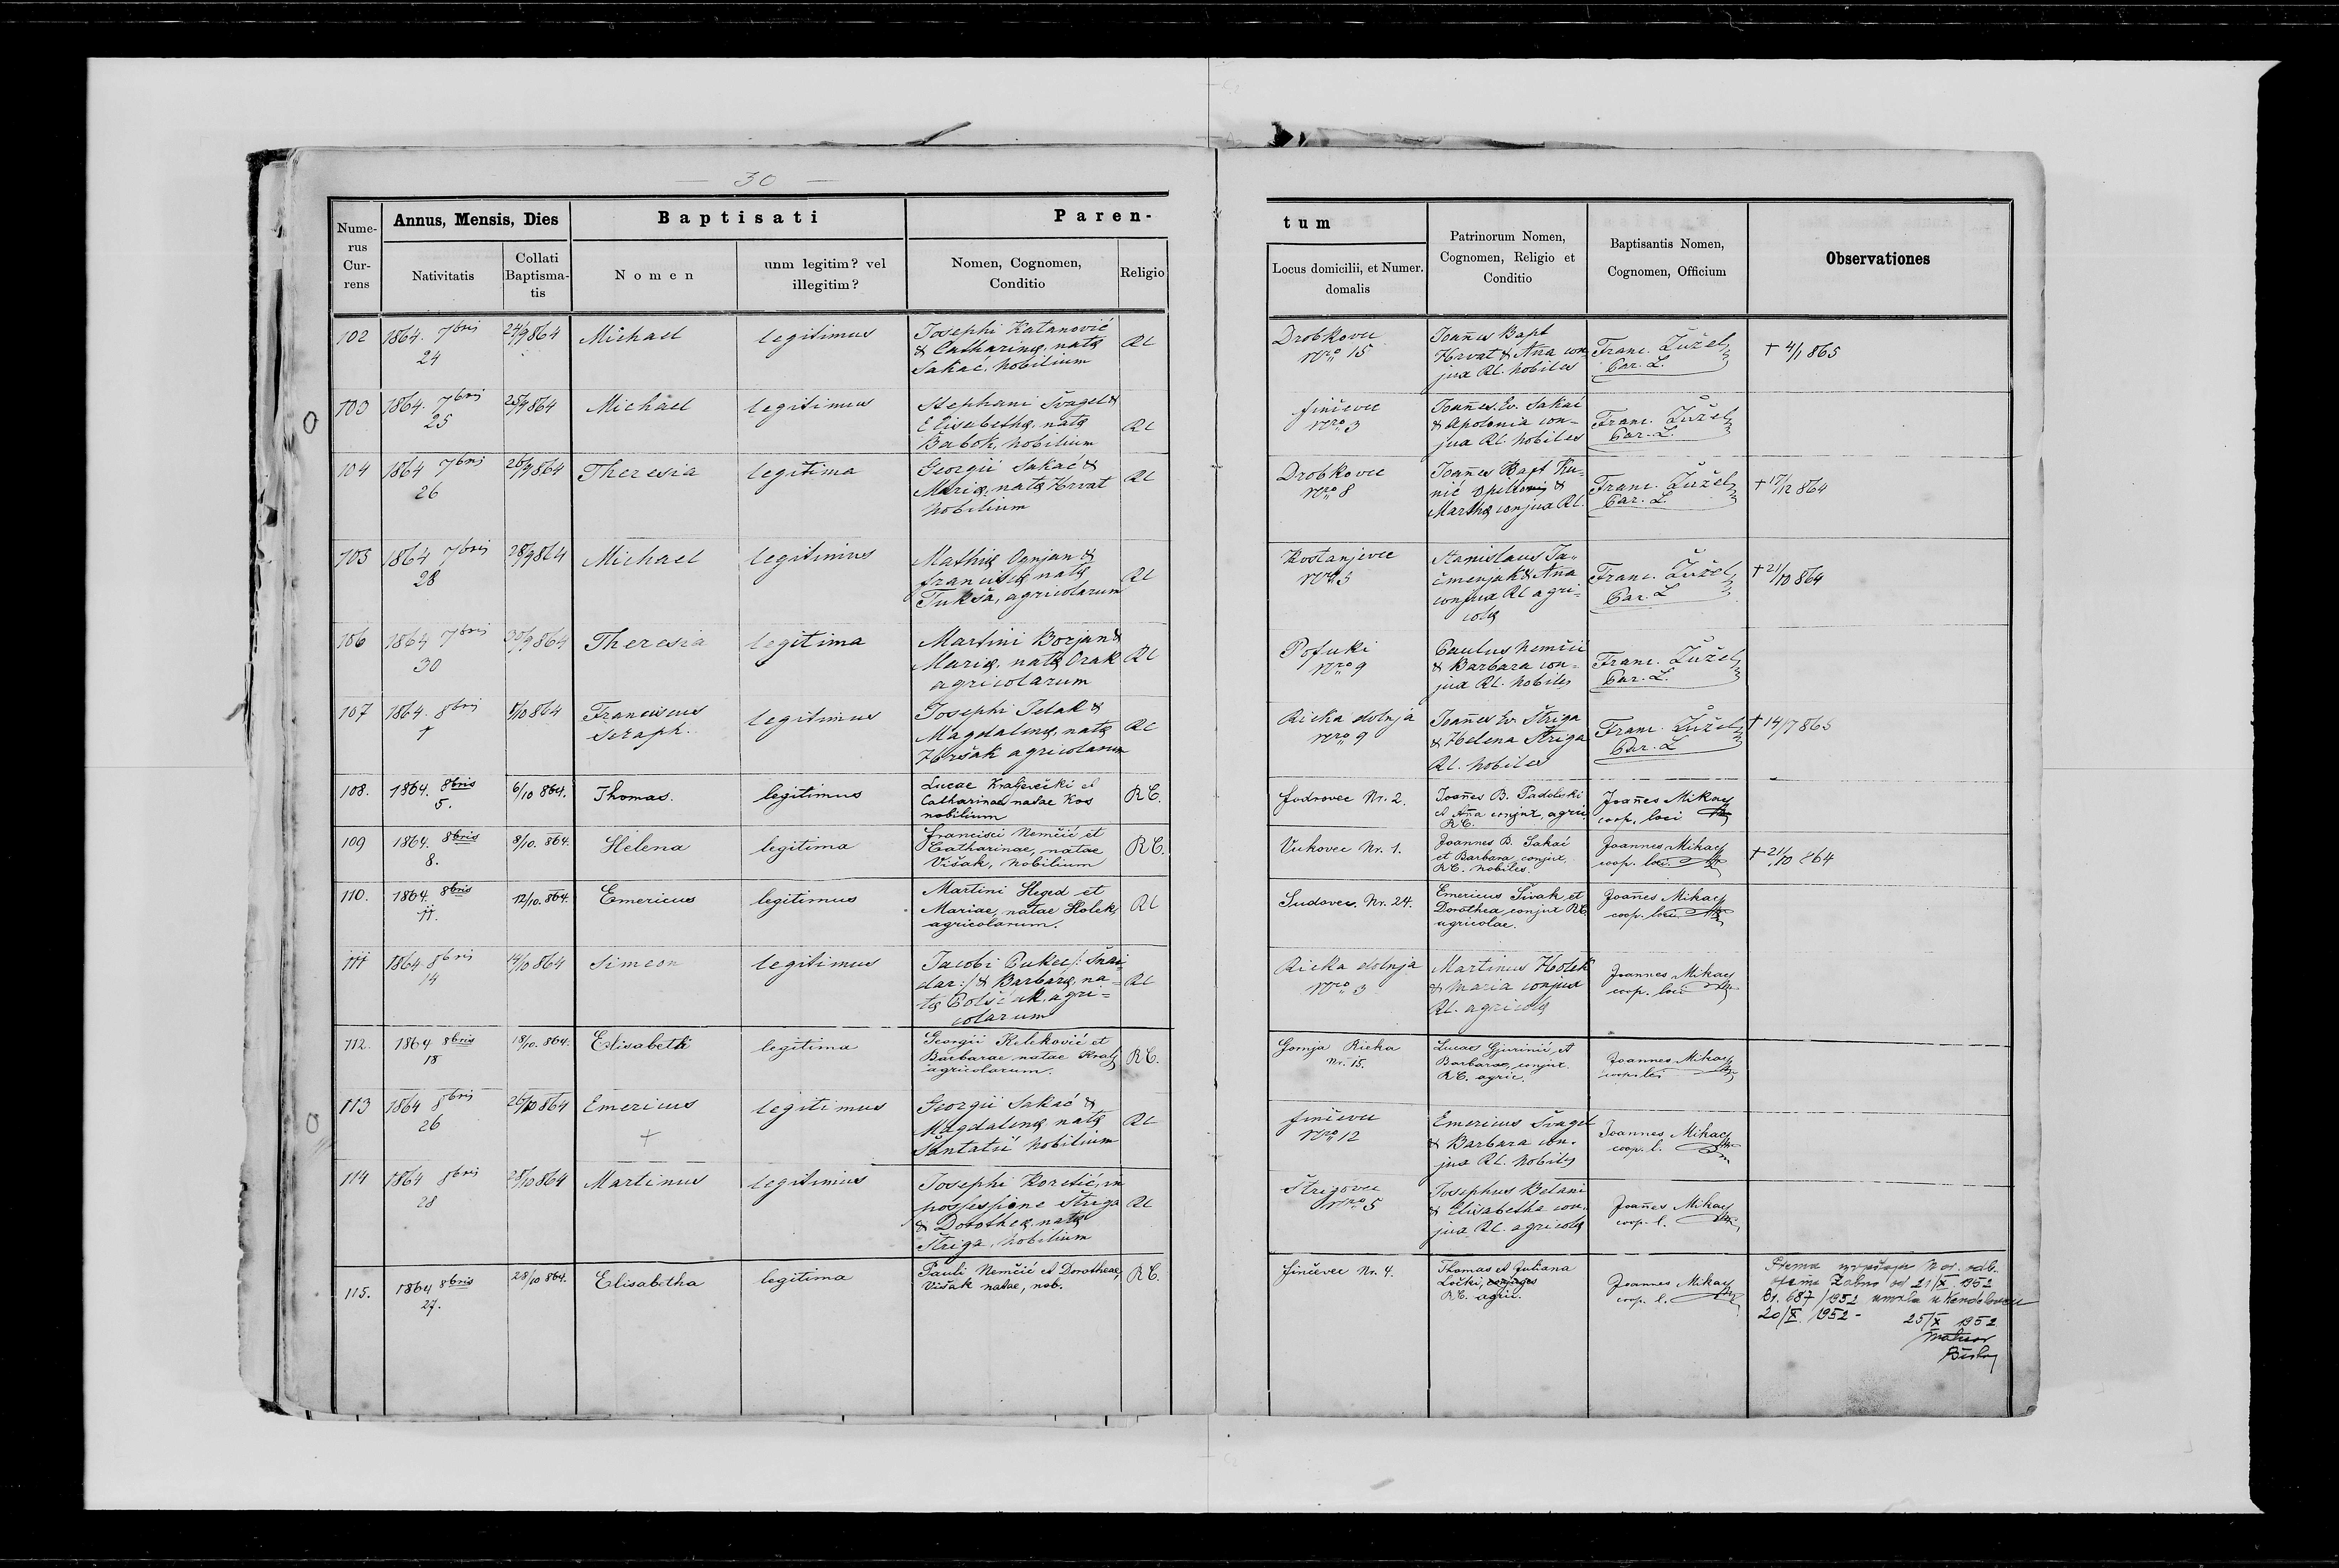 — 30 —
Nume-
rus
Cur-
rens
Annus, Mensis, Dies
Nativitatis
Collati
Baptisma-
tis
Baptisati
Nomen
unm legitim? vel
illegitim?
Paren-
Nomen, Cognomen,
Conditio
Religio
tum
Locus domicilii, et Numer.
domalis
Patrinorum Nomen,
Cognomen, Religio et
Conditio
Baptisantis Nomen,
Cognomen, Officium
Observationes
102 1864. 7bris 24 24/9 864 Michael legitimus
Josephi Katanović
& Catharinæ, natæ
Sakać, Nobilium
RC
Drobkovec
Nro 15
Joañes Bapt
Hrvat & Ana con
jux RC. Nobiles
Franc. Žužel
Par. L.
+ 4/1 865
103 1864. 7bris 25 25/9 864 Michael legitimus
Stephani Švagel &
Elisabethæ, natæ
Babok, Nobilium
RC
Finčevec
Nro 3
Joañes Ev. Sakać
& Apolonia con-
jux RC. Nobiles
Franc. Žužel
Par. L.
104 1864 7bris 26 26/9 864 Theresia legitima
Georgii Sakać &
Mariæ, natæ Hrvat
Nobilium
RC
Drobkovec
Nro 8
Joañes Bapt Ku-
nić &
Marthæ conjux RC.
Franc. Žužel
Par. L
+ 17/12 864
105 1864 7bris 28 28/9 864 Michael legitimus
Mathiæ Ognjan &
Franciscæ natæ
Tukša, agricolarum
RC
Kostanjevec
Nro 5
Stanislaus Ja-
čmenjak & Ana
conjux RC agri-
colæ
Franc. Žužel
Par. L
+ 21/10 864
106 1864 7bris 30 30/9 864 Theresia legitima
Martini Borjan &
Mariæ, natæ Orak
agricolarum
RC
Pofuki
Nro 9
Paulus Nemčić
& Barbara con-
jux RC. Nobiles
Franc. Žužel
Par. L.
107 1864. 8bris 5/10 864 Franciscus
Seraph.
legitimus
Josephi Jelak &
Magdalenæ, natæ
Horšak agricolarum
RC
Rieka dolnja
Nro 9
Joañes Ev. Štriga
& Helena Štriga
RC. Nobiles
Franc. Žužel
Par. L
+ 14/7 865
108. 1864. 8bris 5. 6/10 864. Thomas. legitimus
Lucae Kraljevečki et
Catharinae natae Kos
nobilium
RC.
Fodrovec Nr. 2.
Joañes B. Padolski
et Aña conjux, agric.
RC.
Joañes Mikac
coop. loci
109 1864. 8bris 8. 8/10. 864. Helena legitima
Francisci Nemčić et
Catharinae, natae
Višak, Nobilium
RC.
Vukovec Nr. 1.
Joannes B. Sakać
et Barbara conjux.
RC. Nobiles.
Joannes Mikac
coop. loci
+ 21/10 864
110. 1864. 8bris 11. 12/10. 864. Emericus legitimus
Martini Heged et
Mariae, natae Holek,
agricolarum.
RC
Sudovec. Nr. 24.
Emericus Sivak et
Dorothea conjux RC.
agricolae.
Joañes Mikac
coop. loci
111 1864 8bris 14 14/10 864 Simeon legitimus
Jacobi Cukec /: Šnai-
dar :/ & Barbaræ, na-
tæ Polšćak, agri-
colarum
RC
Rieka dolnja
Nro 3
Martinus Holek
& Maria conjux
RC. agricolæ
Joannes Mikac
coop. loci
112. 1864 8bris 18 18/10. 864. Elisabeth legitima
Georgii Keleković et
Barbarae natae Kralj
agricolarum.
RC.
Gornja Rieka
Nr. 15.
Lucas Gjurinić et
Barbarae, conjux.
RC. agric.
Joannes Mikac
coop. loci
113 1864 8bris 26 26/10 864 Emericus +
legitimus
Georgii Sakać &
Magdalenæ natæ
Šantatić Nobilium
RC
Finčevec
Nro 12
Emericus Švagel
& Barbara con-
jux RC. Nobiles
Joannes Mikac
coop. l.
114 1864 8bris 28 28/10 864 Martinus legitimus
Josephi Koretić, in
possessione Štriga
& Dorotheæ, natæ
Štriga, Nobilium
RC
Štrigovec
Nro 5
Josephus Belani
& Elisabetha con-
jux RC. agricolæ
Joañes Mikac
coop. l.
115. 1864 8bris 27. 28/10 864. Elisabetha legitima
Pauli Nemčić et Dorotheae,
Višak natae, nob.
RC.
Finčevec Nr. 4.
Thomas et Juliana
Ločki, conjuges
RC. agric.
Joannes Mikac
coop. l.
Prema izvještaju N. or. odb.
općine Žabno od 21/X. 1952
Br. 687/1952 umrla u Kendelovcu
20/X. 1952 - 25/X 1952